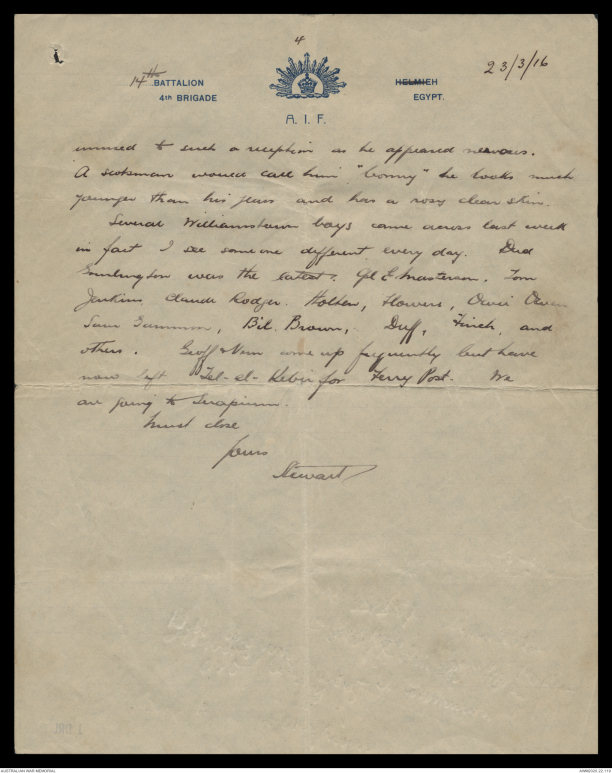 4
14th BATTALION
4th BRIGADE
HELMIEH
EGYPT.
23/3/16
A. I. F.
unused to such a reception as he appeared nervous.
A scotsman would call him "bonny" he looks much
younger than his years and has a rosy clear skin.
Several Williamstown boys came across last week
in fact I see someone different every day. Dad
was the latest. Cpl E. Masterson. Tom
Jenkins, Claude Rodger. Hothen, Flowers, Owen
Sam Gammon, Bill Brown, Duff, Finch, and
others. Geoff & Norm come up frequently but have
now left Tel-el-Kebir for Ferry Post. We
are going to Serapium.
Must close
Yours
Stewart
1 DRL
AUSTRALIAN WAR MEMORIAL